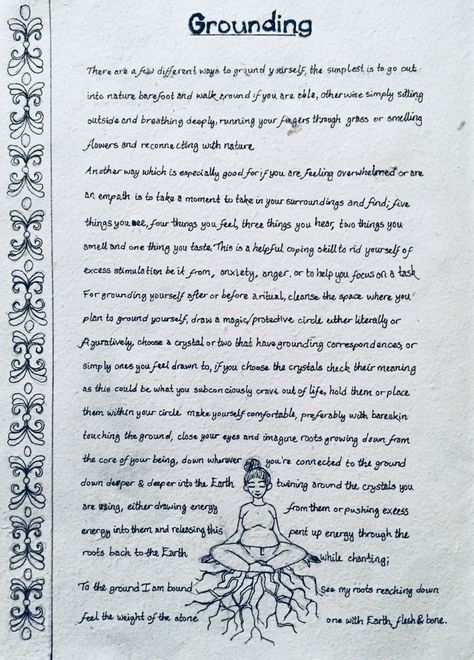 Grounding
There are a few different ways to ground yourself, the simplest is to go out
into nature barefoot and walk around if you are able, otherwise simply sitting
outside and breathing deeply, running your fingers through grass or smelling
flowers and reconnecting with nature
Another way which is especially good for if you are feeling overwhelmed or are
an empath is to take a moment to take in your surroundings and find; five
things you see, four things you feel, three things you hear, two things you
smell and one thing you taste. This is a helpful coping skill to rid yourself of
excess stimulation be it from, anxiety, anger, or to help you focus on a task
For grounding yourself after or before a ritual, cleanse the space where you
plan to ground yourself, draw a magic/protective circle either literally or
figuratively, choose a crystal or two that have grounding correspondences, or
simply ones you feel drawn to, if you choose the crystals check their meaning
as this could be what you subconciously crave out of life, hold them or place
them within your circle make yourself comfortable, preferably with bareskin
touching the ground, close your eyes and imagine roots growing down from
the core of your being, down wherever you're connected to the ground
down deeper & deeper into the Earth twining around the crystals you
are using, either drawing energy from them or pushing excess
energy into them and releasing this pent up energy through the
roots back to the Earth while chanting;
To the ground I am bound see my roots reaching down
feel the weight of the stone one with Earth, flesh & bone.